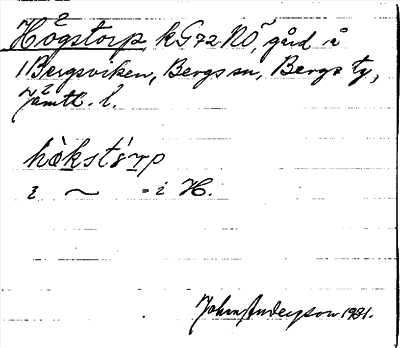 Högstorp kG72NÖ, gård å
Bergsviken, Bergs sn, Bergs tg,
Jämtl. l.
hò̱kstòrp
i ~ = i H.
John Anderson 1931.